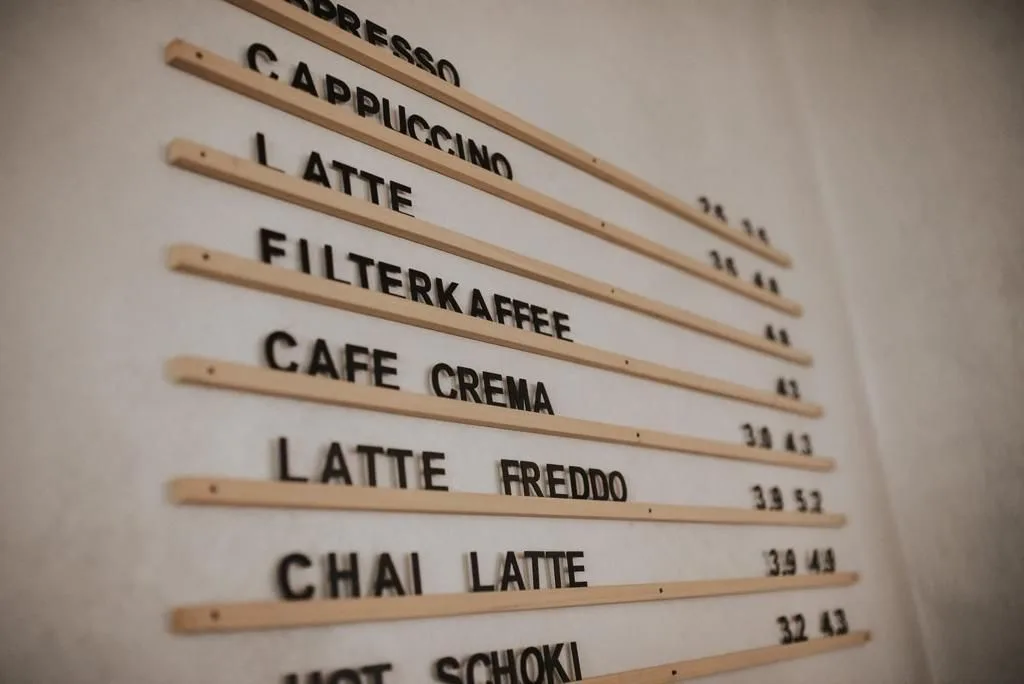 PRESSO
CAPPUCCINO
LATTE
FILTERKAFFEE 43
CAFE CREMA
LATTE FREDDO 3.9 5.2
CHAI LATTE 3.9 4.9
HOT SCHOKI 3.2 4.3